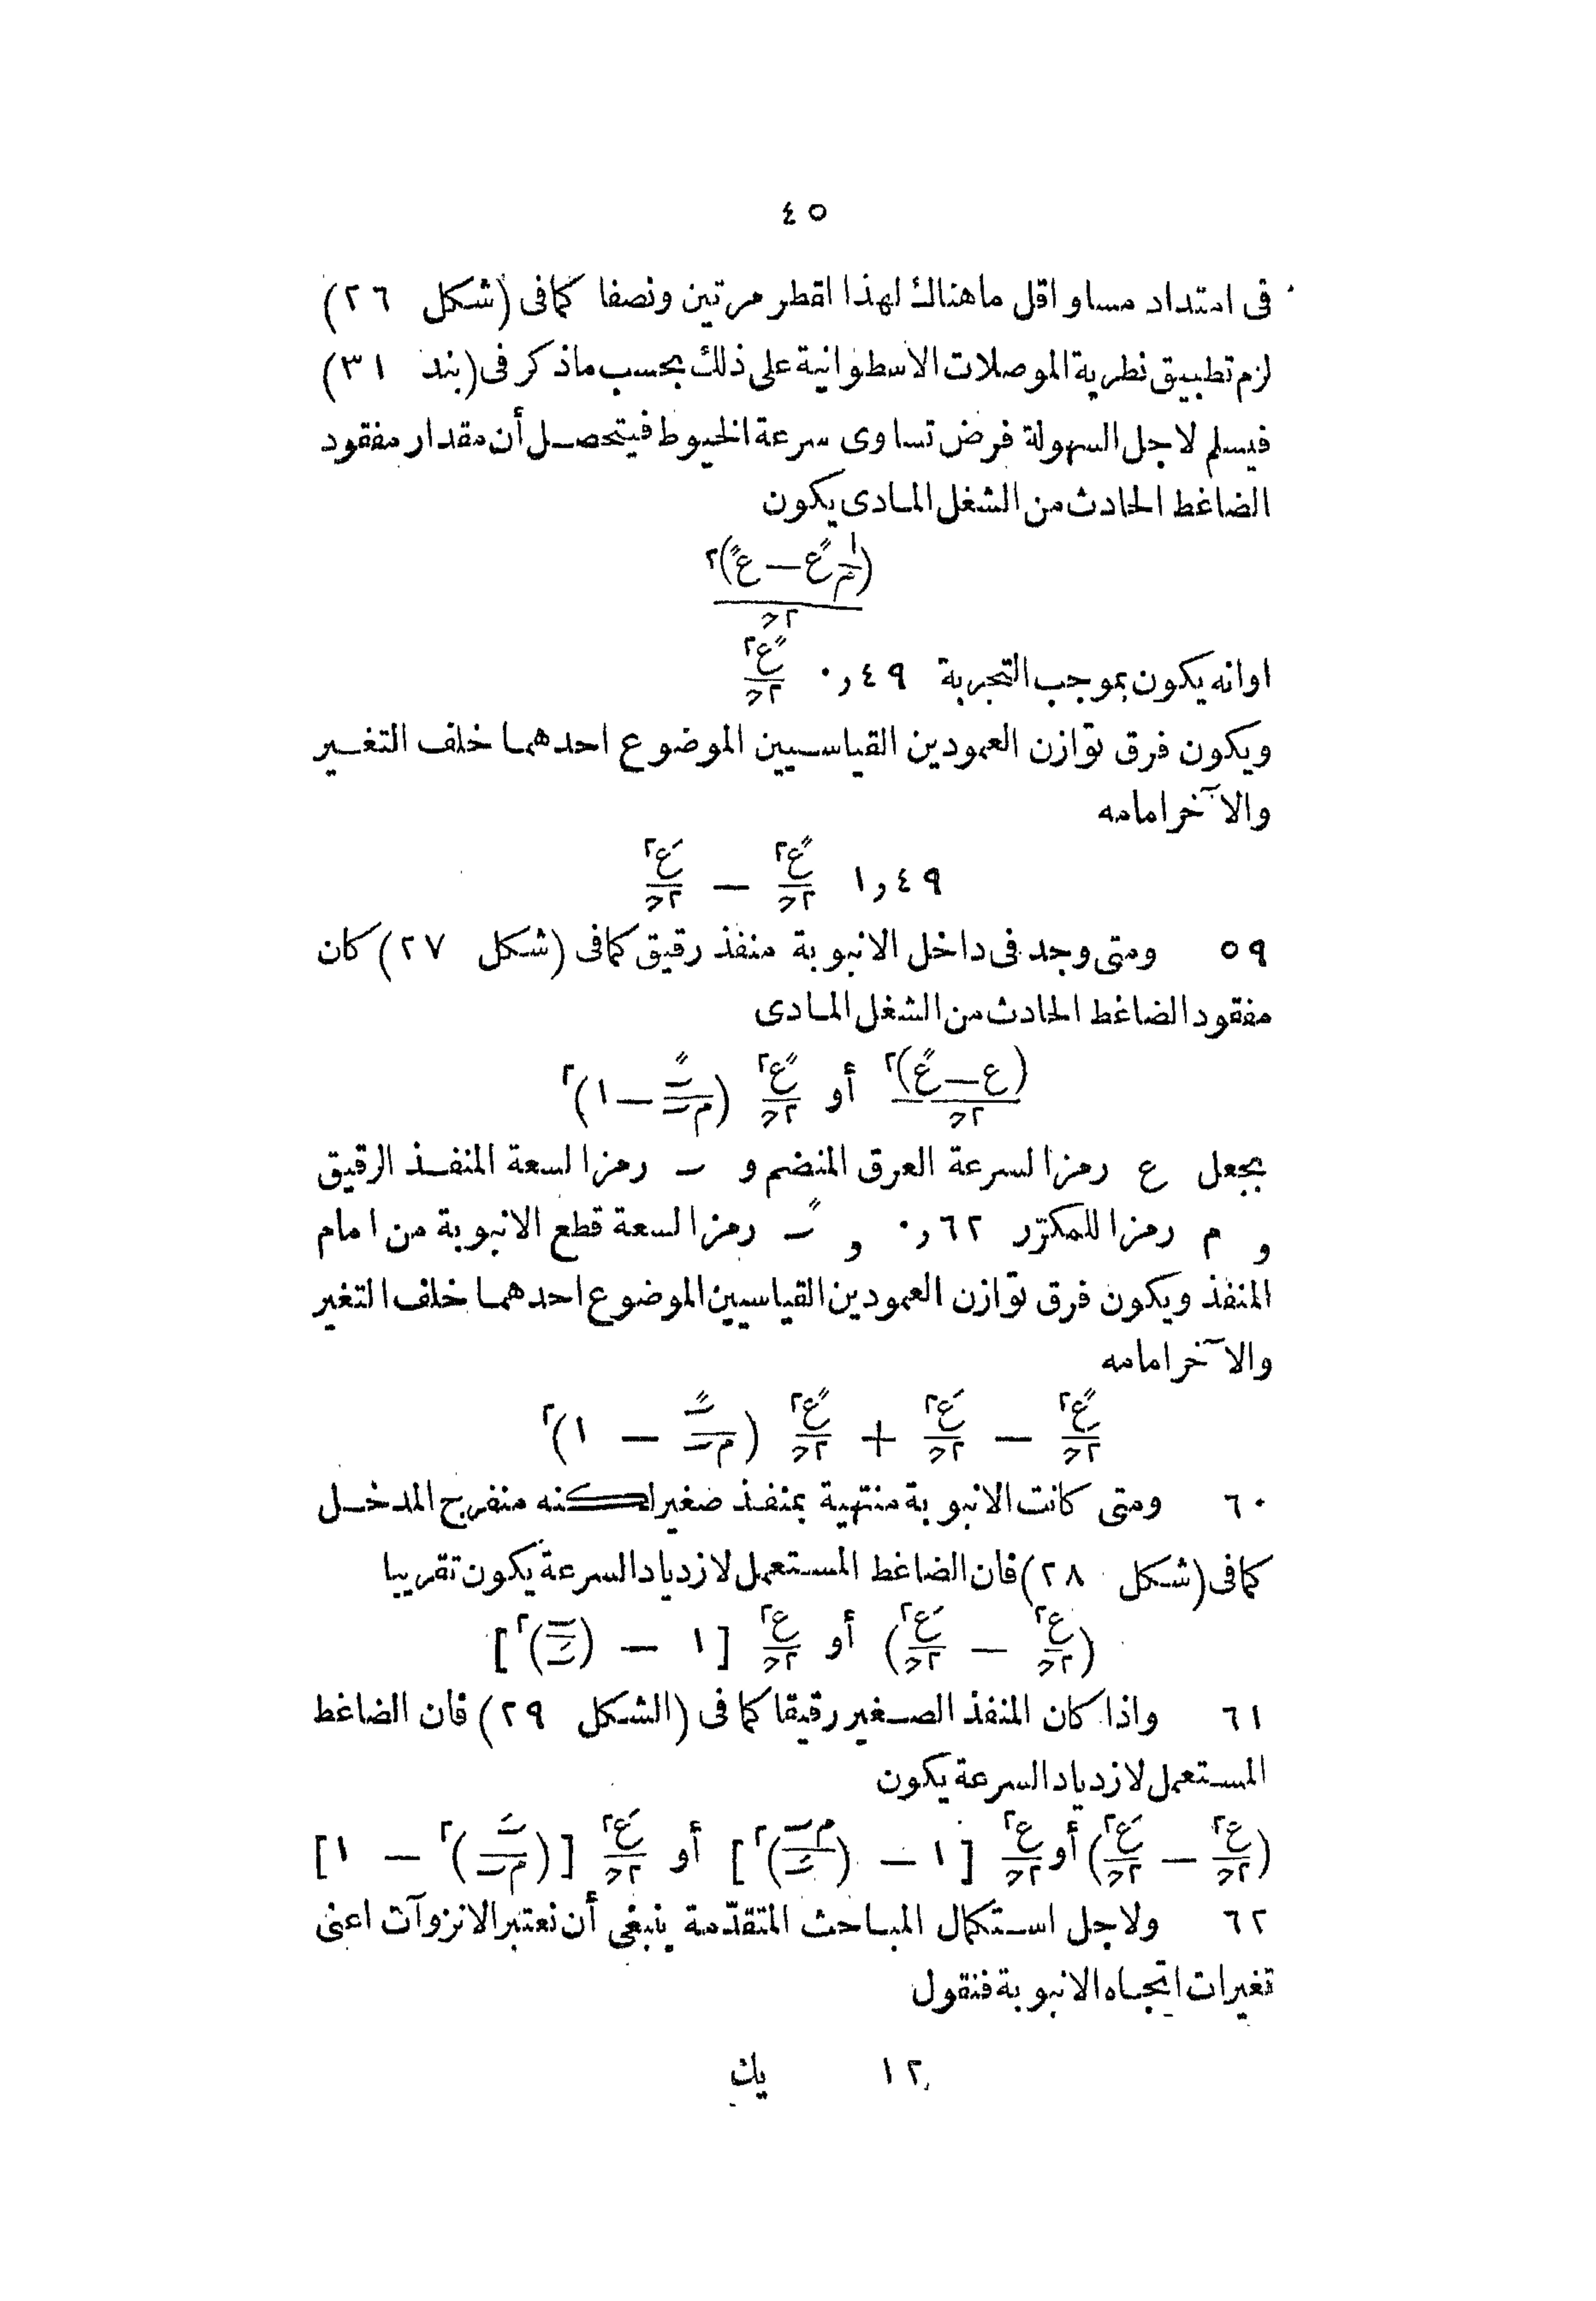 ٤٥
فى امتداد مساو اقل ماهناك لهذا اقطر مرتين ونصفا كمافى (شكل ٢٦)
لزم تطبيق نظرية الموصلات الاسطوانية على ذلك بحسب ماذكر فى (بند ٣١)
فيسلم لاجل السهولة فرض تساوى سرعة الخيوط فيتحصل أن مقدار مفقود
الضاغط الحادث من الشغل المادى يكون
اوانه يكون بموجب التجربة ٠,٤٩
ويكون فرق توازن العمودين القياسيين الموضوع احدهما خلف التغير
والآخر امامه
٥٩ ومتى وجد فى داخل الانبوبة منفذ رقيق كمافى (شكل ٢٧) كان
مفقود الضاغط الحادث من الشغل المادى
بجعل ع رمزا لسرعة العرق المنضم و ب رمزا لسعة المنفذ الرقيق
و م رمزا للمكرّر ٠,٦٢ و ب″ رمزا لسعة قطع الانبوبة من امام
المنفذ ويكون فرق توازن العمودين القياسيين الموضوع احدهما خلف التغير
والآخر امامه
٦٠ ومتى كانت الانبوبة منتهية بمنفذ صغير لكنه منفرج المدخل
كمافى (شكل ٢٨) فان الضاغط المستعمل لازدياد السرعة يكون تقريبا
٦١ واذا كان المنفذ الصغير رقيقا كما فى (الشكل ٢٩) فان الضاغط
المستعمل لازدياد السرعة يكون
٦٢ ولاجل استكمال المباحث المتقدّمة ينبغى أن نعتبر الانزوآت اعنى
تغيرات اتجاه الانبوبة فنقول
١٢ يك